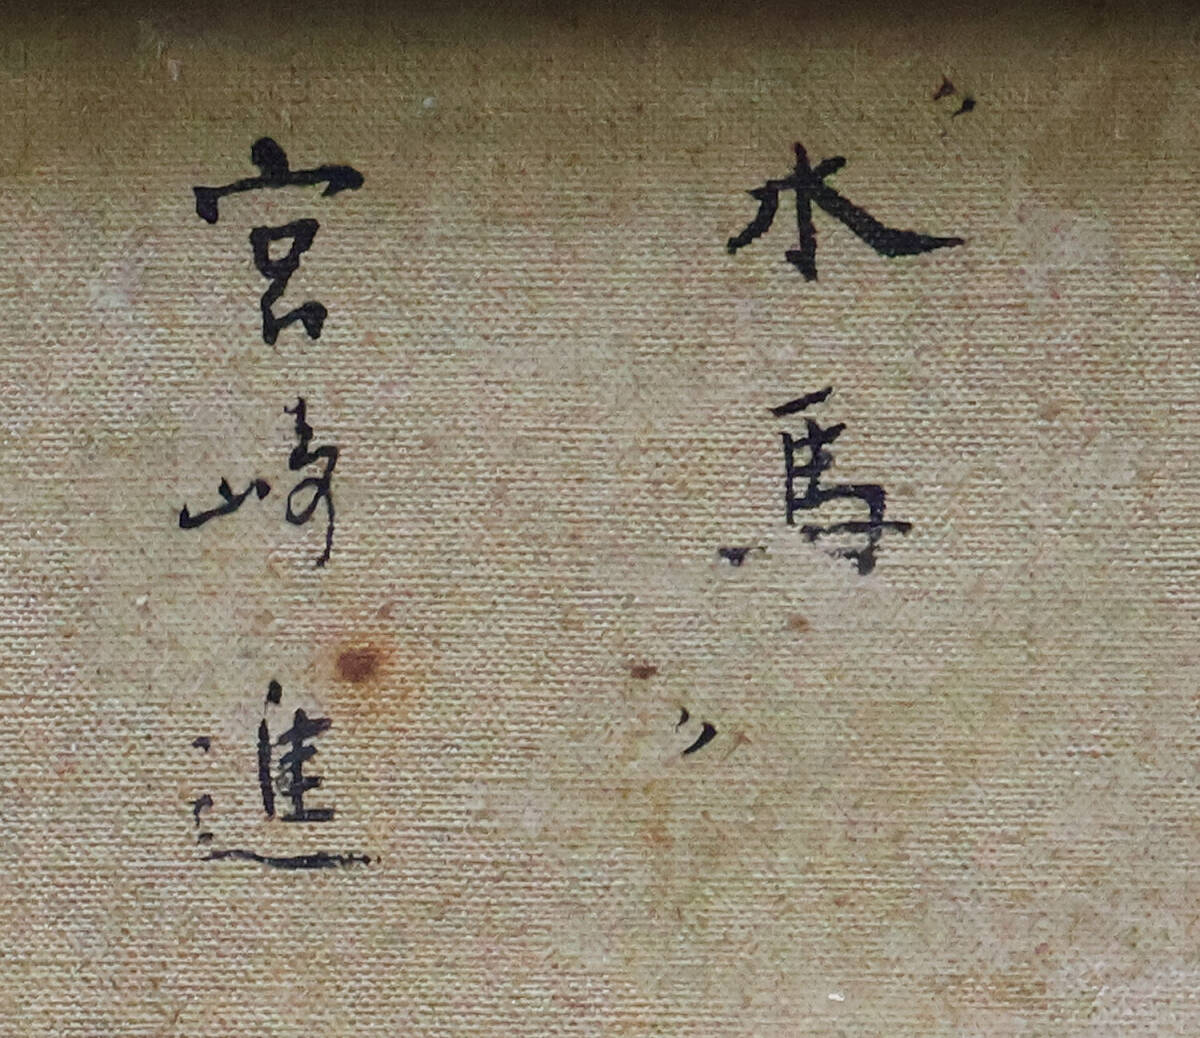 〃水馬〃
宮崎進